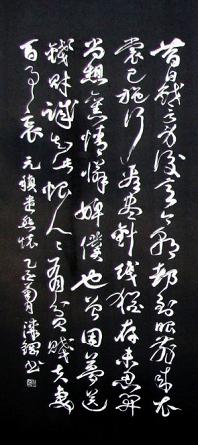 昔日戲言身後意今朝都到眼前來衣
裳已施行看盡針線猶存未忍開
尚想舊情憐婢僕也曾因夢送
錢財誠知此恨人々有貧賤夫妻
百事哀 元稹遣悲懷 乙酉 書